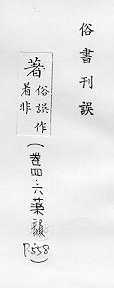 俗書刊誤
著俗誤作
著非
(卷四.六藥韻
P.558)